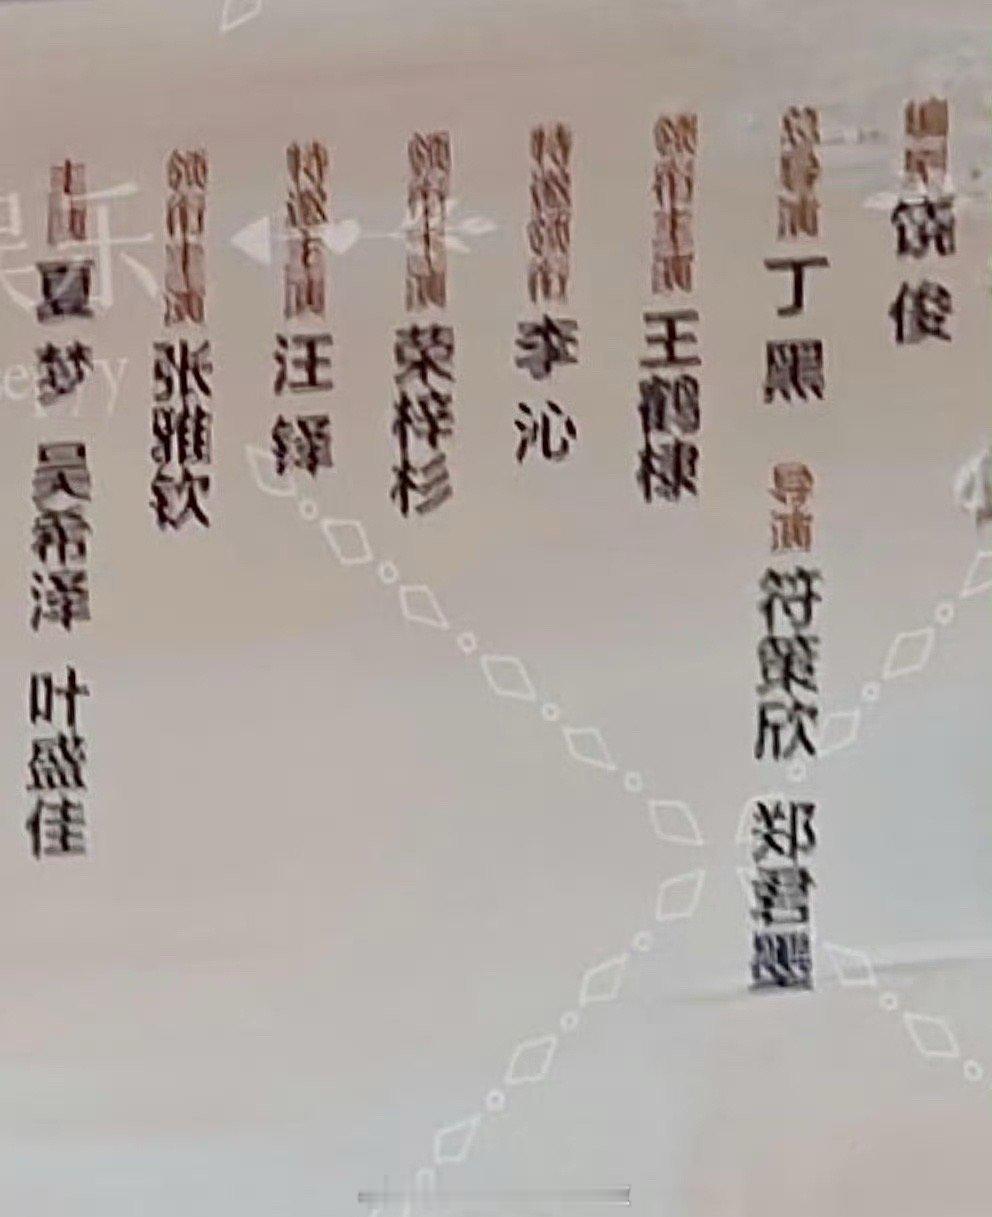 编剧 饶俊
总导演 丁黑 导演 符策欣 郑黑
领衔主演 王鹤棣
特邀领衔 李沁
领衔主演 荣梓杉
特邀主演 汪铎
领衔主演 张雅钦
主演 夏梦 吴希泽 叶盛佳
娱乐